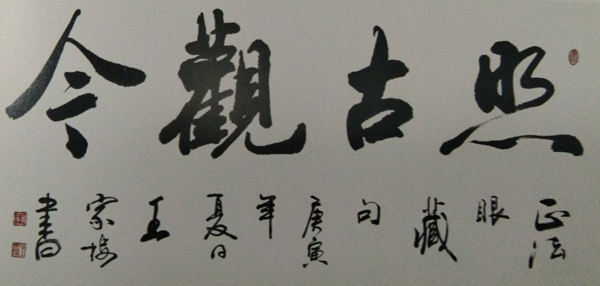 照古觀今
正法眼藏句庚寅年夏日王家書